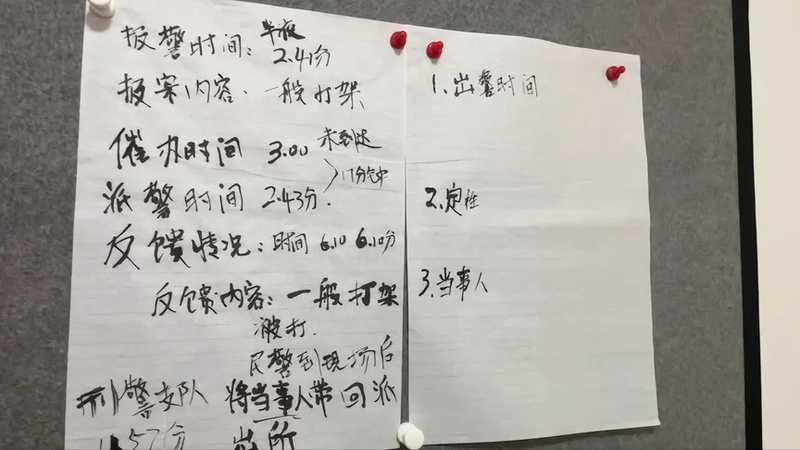 报警时间：半夜
2.41分
报案内容、一般打架
催办时间 3.00 未到达
派警时间 2.43分. 17分钟
反馈情况：时间 6.10 6.10分
反馈内容：一般打架
被打.
民警到现场后
刑警支队 将当事人带回派
57分 出所
1、出警时间
2、定性
3、当事人